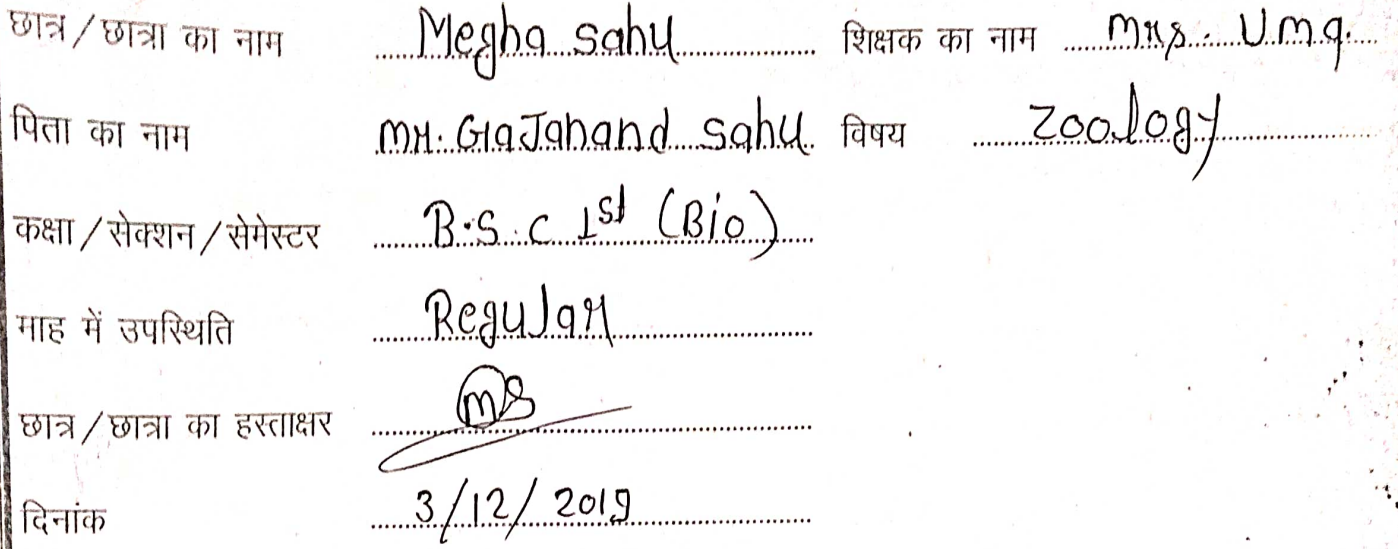 छात्र / छात्रा का नाम Megha sahu शिक्षक का नाम Mrs. Uma.
पिता का नाम Mr. GaJanand sahu विषय Zoology
कक्षा / सेक्शन / सेमेस्टर B.S.C 1st (Bio)
माह में उपस्थिति Regular
छात्र / छात्रा का हस्ताक्षर MS
दिनांक 3/12/2019